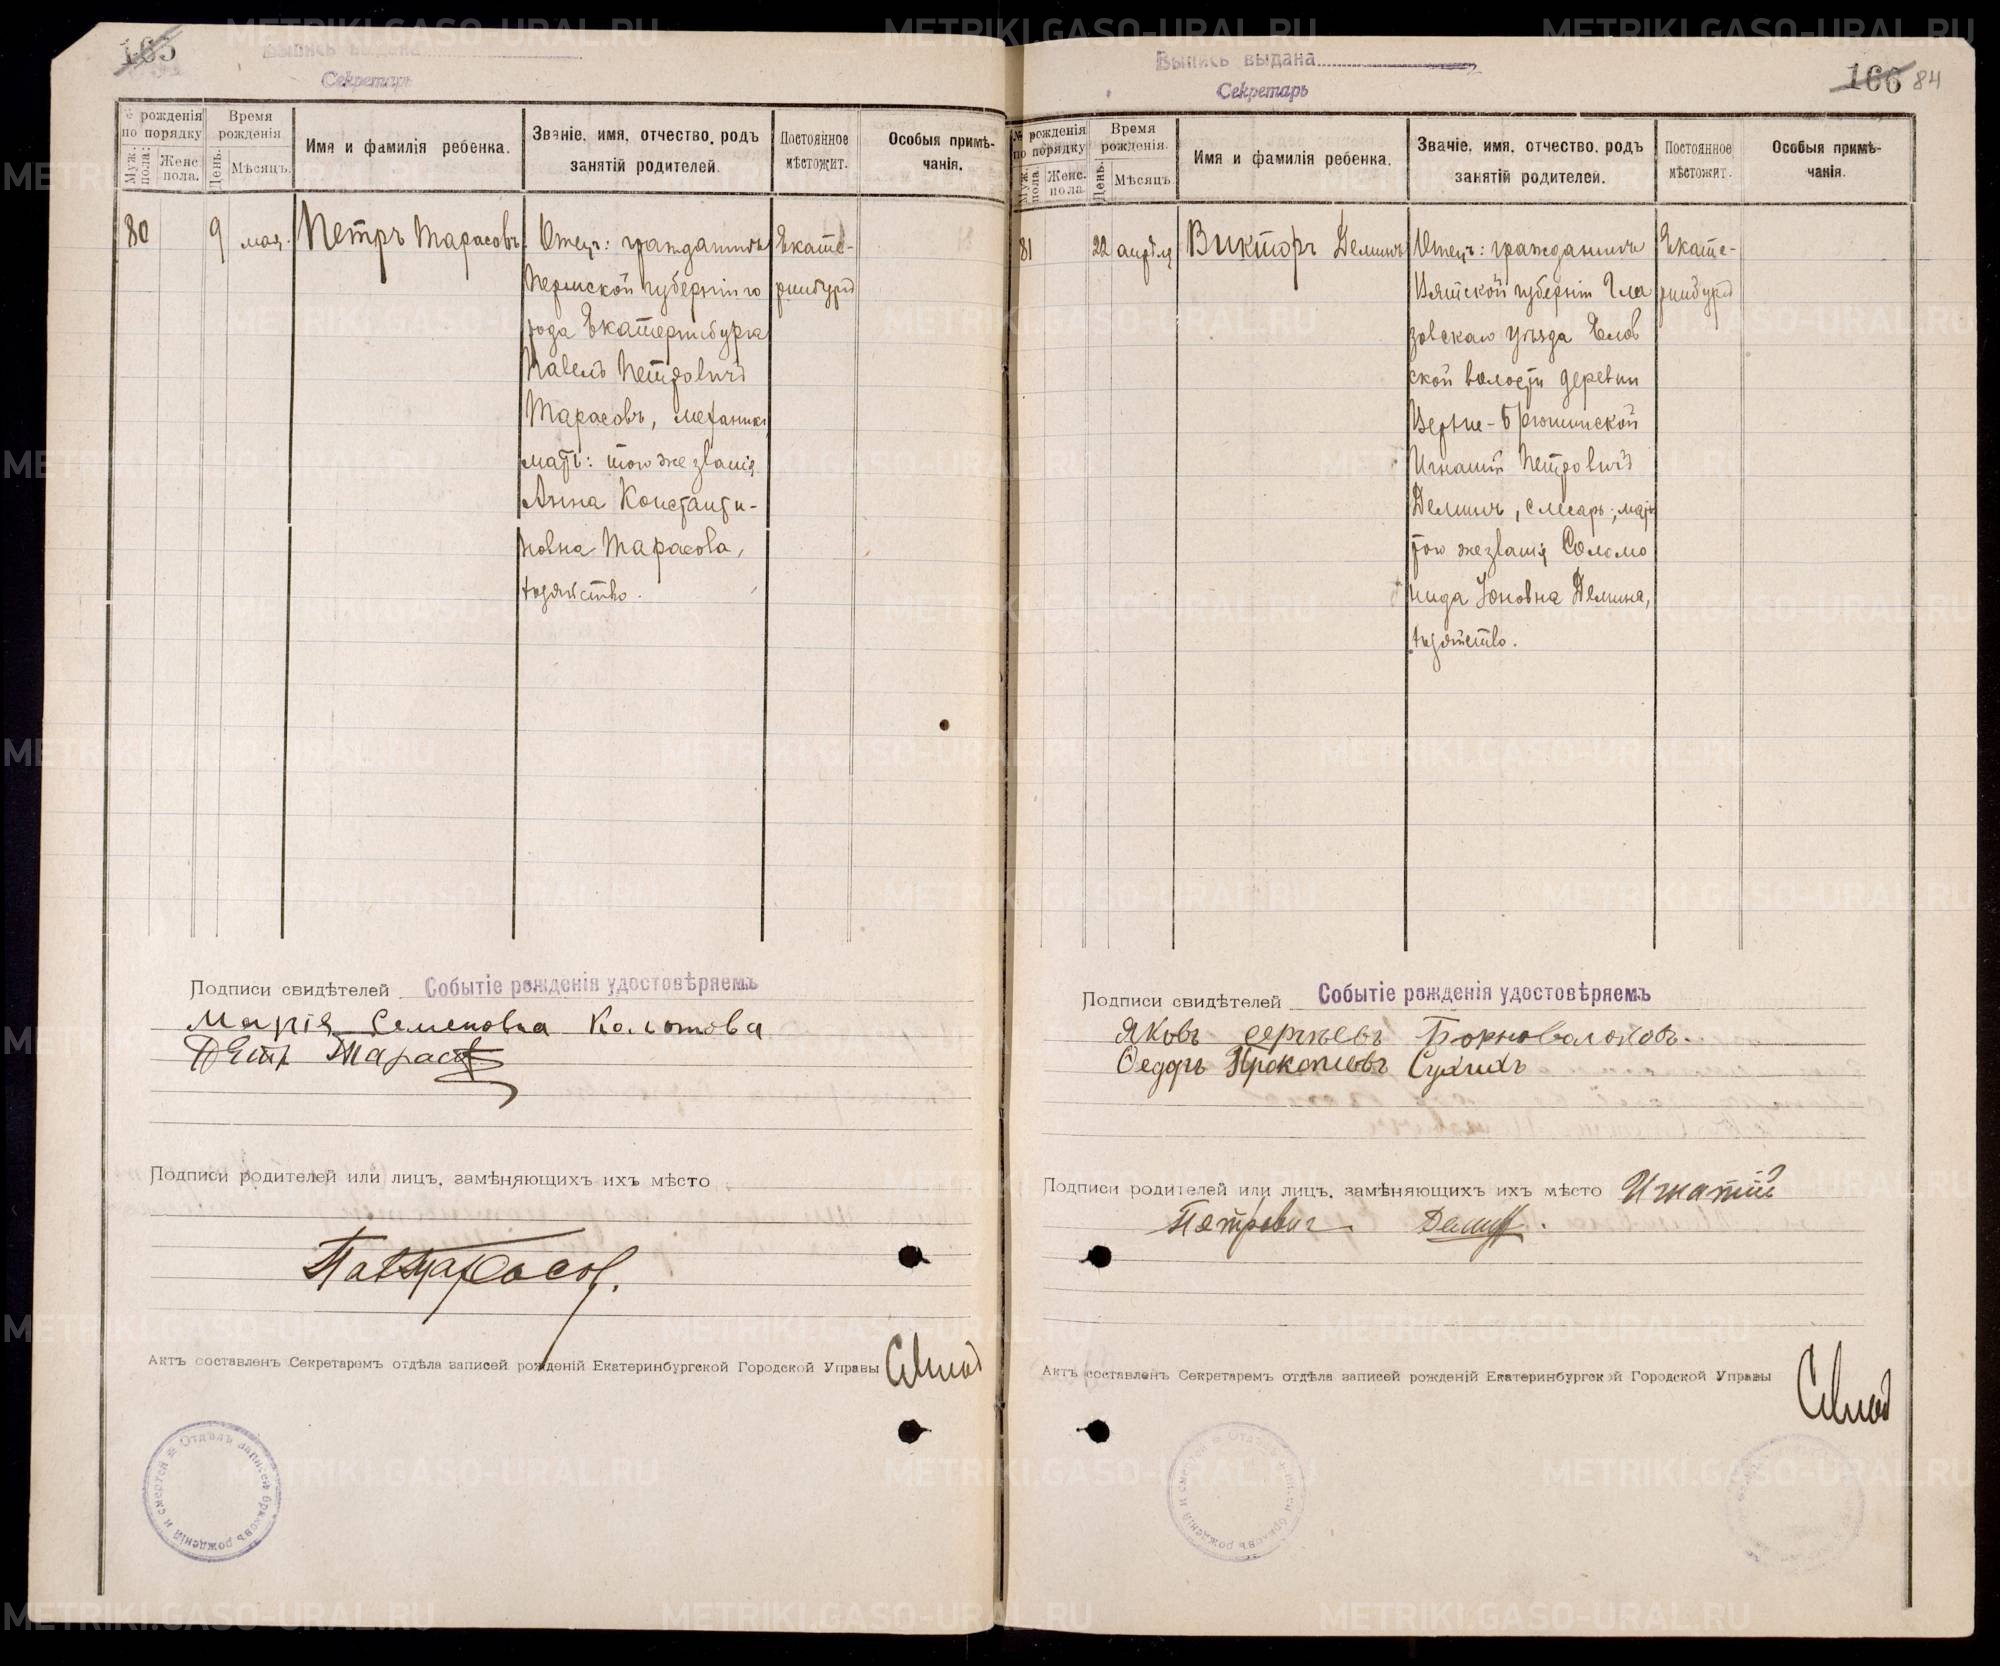 165
Выпись выдана
Секретарь
№ рожденія по порядку
Муж. пола.
Женс. пола.
Время рожденія
День.
Мѣсяцъ.
Имя и фамилія ребенка.
Званіе, имя, отчество, родъ занятій родителей.
Постоянное мѣстожит.
Особыя примѣ-
чанія.
80
9
мая.
Петръ Тарасовъ
Отецъ: гражданинъ
Пермской губерніи го
рода Екатеринбурга
Павелъ Петровичъ
Тарасовъ, механикъ,
мать: того же званія
Анна Константи-
новна Тарасова,
хозяйство.
Екате-
ринбургъ
Подписи свидѣтелей Событіе рожденія удостовѣряемъ
Марія Семеновна Колотова
Петръ Тарасовъ
Подписи родителей или лицъ, замѣняющихъ ихъ мѣсто
Пав Тарасовъ.
Актъ составленъ Секретаремъ отдѣла записей рожденій Екатеринбургской Городской Управы
Отдѣлъ записей браковъ рожденій и смертей
Выпись выдана
Секретарь
166 84
№ рожденія по порядку
Муж. пола
Женс. пола
Время рожденія.
День.
Мѣсяцъ
Имя и фамилія ребенка.
Званіе, имя, отчество, родъ занятій родителей.
Постоянное мѣстожит.
Особыя примѣ-
чанія.
81
22
апрѣля
Викторъ Деминъ
Отецъ: гражданинъ
Вятской губерніи Гла
зовскаго уѣзда Елов
ской волости деревни
Верхне-Брюшинской
Игнатій Петровичъ
Деминъ, слесарь; мать
того же званія Соломо
нида Іоновна Демина,
хозяйство.
Екате-
ринбургъ
Подписи свидѣтелей Событіе рожденія удостовѣряемъ
Яковъ Сергѣевъ Борноволоковъ.
Ѳедоръ Прокопьевъ Сухихъ
Подписи родителей или лицъ, замѣняющихъ ихъ мѣсто Игнатій
Петрович Демин.
Актъ составленъ Секретаремъ отдѣла записей рожденій Екатеринбургской Городской Управы
METRIKI.GASO-URAL.RU